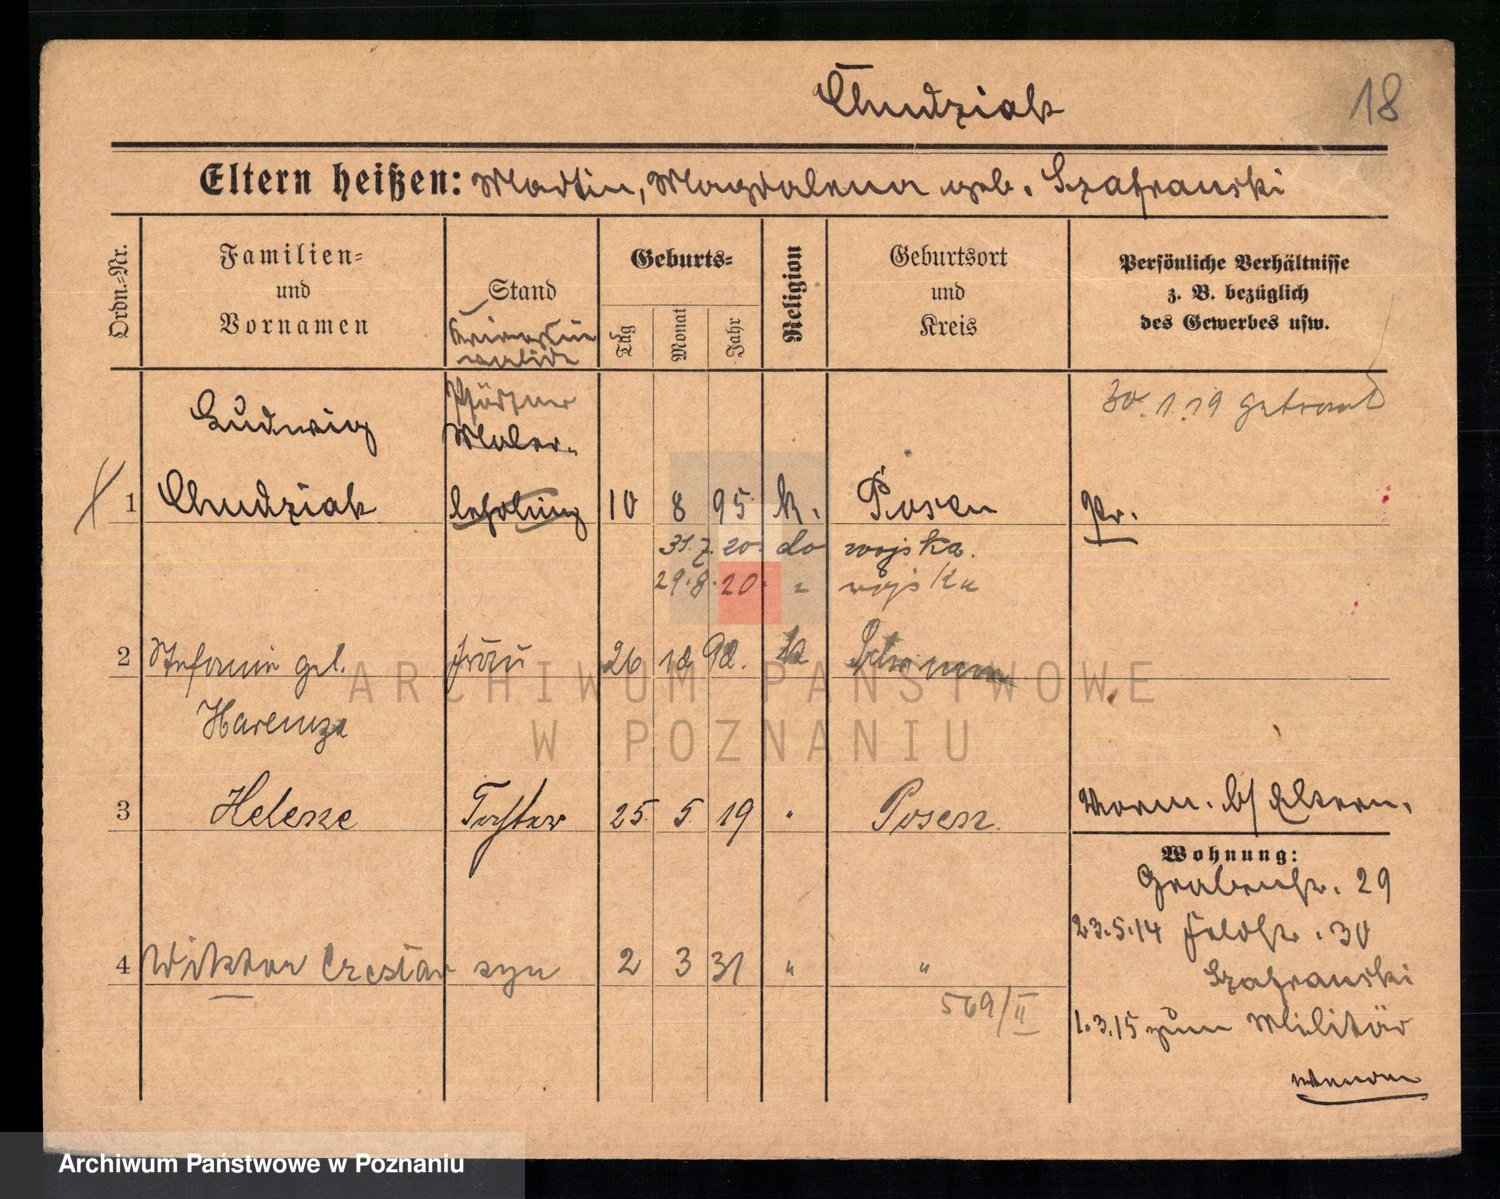 Chudziak
18
Eltern heißen: Martin, Magdalena geb. Szafranski
Ordn.-Nr.
Familien- und Vornamen
Stand
Geburts-
Tag
Monat
Jahr
Religion
Geburtsort und Kreis
Persönliche Verhältnisse
z. B. bezüglich
des Gewerbes usw.
30.1.19 getraut
Ludwig
Pförtner
Maler-
1 Chudziak lehrling 10 8 95 k. Posen Pr.
31.7.20. do wojska.
29.8.20. " wojska
2 Stefanie geb. Frau 26 12 92. k
3 Helene Tochter 25. 5. 19 " Posen
Eltern.
Wohnung:
Grabenstr. 29
23.5.14 Feldstr. 30
Szafranski
4 Wiktor Czesław syn 2 3 31 " "
569/II
1.3.15 zum Militär
ARCHIWUM PAŃSTWOWE
W POZNANIU
Archiwum Państwowe w Poznaniu